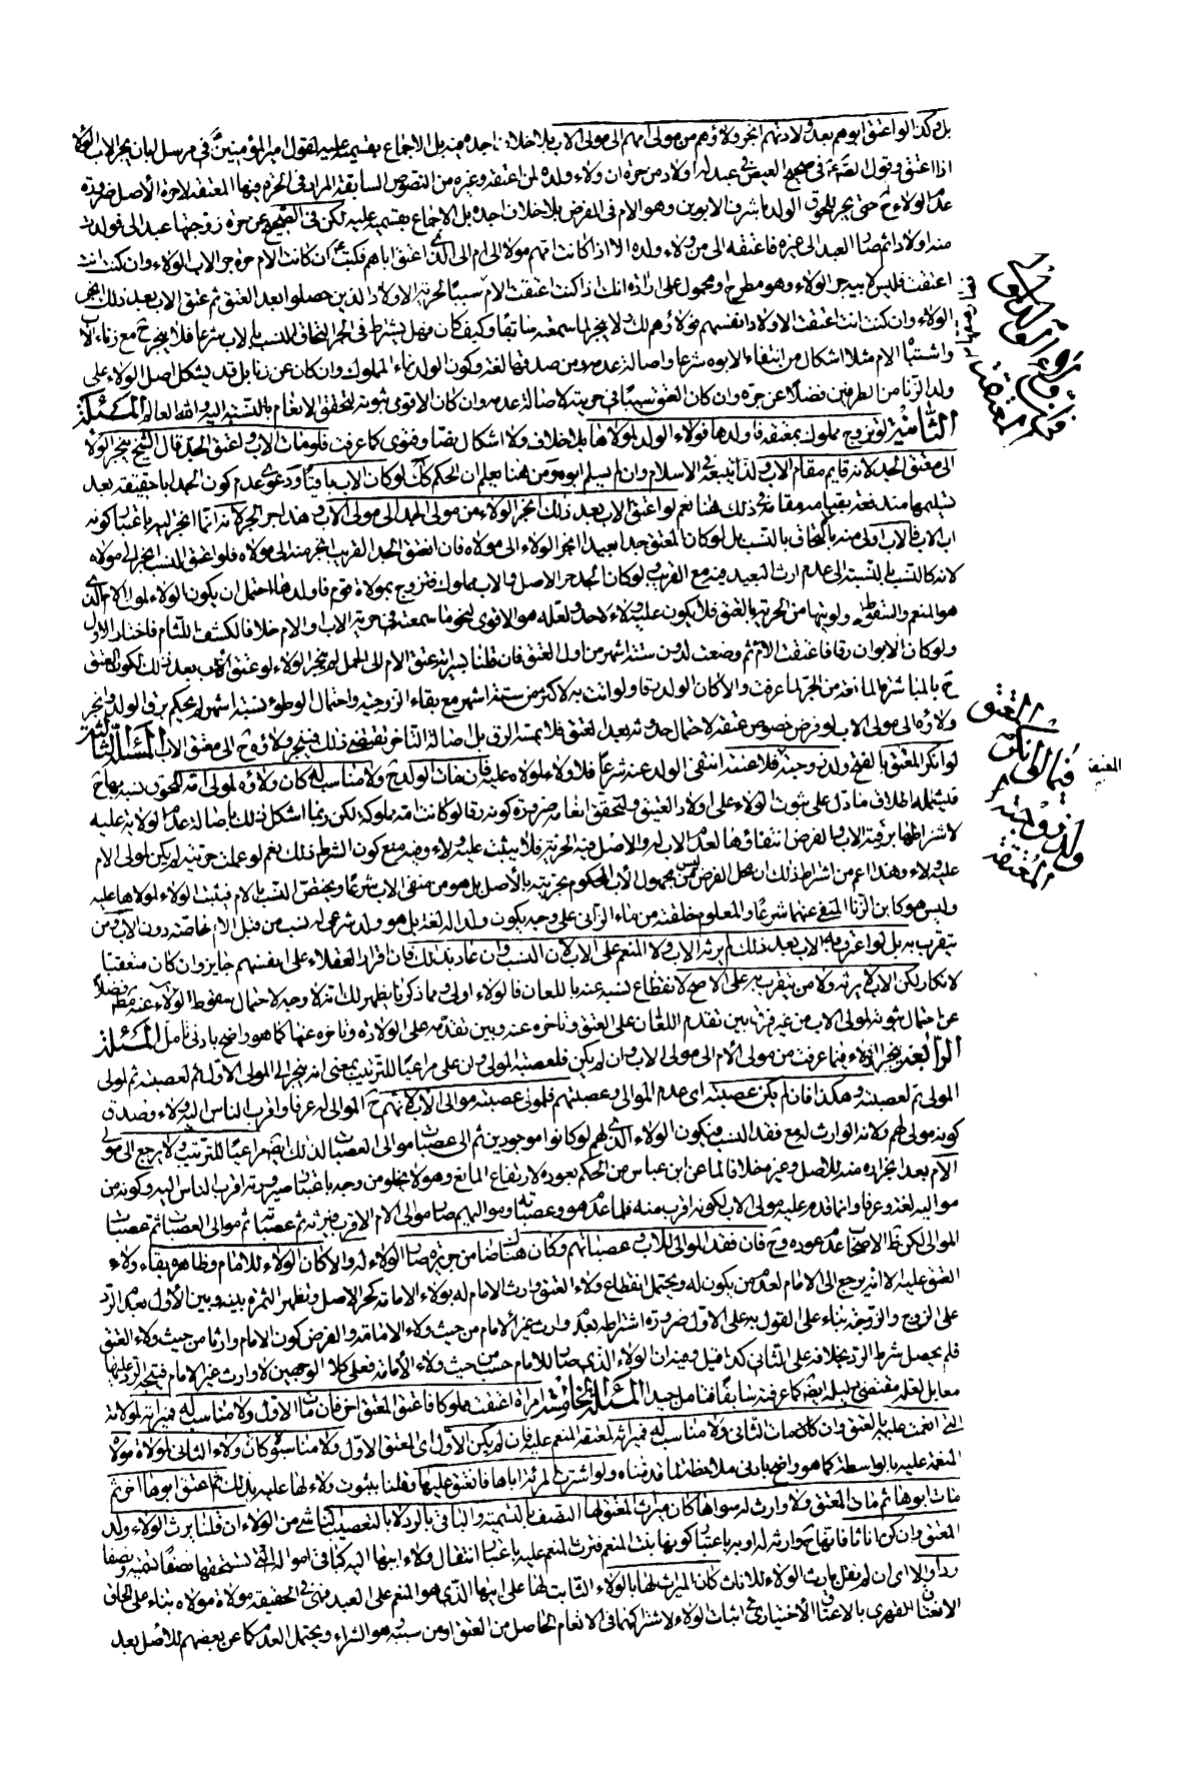 بل وكذا لو اعتق ابوهم بعد ولادتهم انجر ولاؤهم من مولى امهم الى مولى الاب بلا خلاف اجده فيه بل الاجماع بقسميه عليه لقول امير المؤمنين في مرسل ابان يجر الاب الولاء
اذا اعتق وقول الصم في صحيح العيص في عبد له اولاد من حرة ان ولاء ولده لمن اعتقه وغيره من النصوص السابقة المراد في الحرة فيها المعتقة لا حرة الأصل ضرورة
عدم الولاء ح حتى يجر للحوق الولد باشرف الابوين وهو الام في الفرض بلا خلاف اجده بل الاجماع بقسميه عليه لكن في الصحيح عن حرة زوجتها عبدا لي فولدت
منه اولادا ثم صار العبد الى غيري فاعتقه الى من ولاء ولده الي اذا كانت امهم مولاتي ام الى الذي اعتق اباهم فكتب ان كانت الام حرة جر الاب الولاء وان كنت انت
اعتقت فليس لابيه جر الولاء وهو مطرح او محمول على ارادة انك اذا كنت اعتقت الام سببا لحرية الاولاد الذين حصلوا بعد العتق ثم عتق الاب بعد ذلك انجر
الولاء وان كنت انت اعتقت الاولاد انفسهم فولاؤهم لك لا يجر لما سمعته سابقا وكيف كان فهل يشترط في الجر التحاق النسب بالاب شرعا فلا ينجر ح مع زناء الاب
واشتباه الام مثلا اشكال من انتفاء الابوه شرعا واصالة عدمه ومن صدقها لغة وكون الولد نماء المملوك وان كان عن زنا بل قد يشكل اصل الولاء على
ولد الزنا من الطرفين فضلا عن جره وان كان العتق سببا في حريته لاصالة عدمه وان كان الاقوى ثبوته لتحقق الانعام بالنسبة اليه والله العالم المسئلة
الثانية لو تزوج مملوك بمعتقة فاولدها فولاء الولد لمولاها بلا خلاف ولا اشكال نصا وفتوى كما عرفت فلو مات الاب واعتق الجد قال الشيخ ينجر الولاء
الى معتق الجد لانه قايم مقام الاب ولذا تبعه في الاسلام وان لم يسلم ابوه ومن هنا يعلم ان الحكم كك لو كان الاب باقيا ودعوى عدم كون الجد ابا حقيقة بعد
تسليمها مندفعة بقيامه مقامه في ذلك هنا نعم لو اعتق الاب بعد ذلك انجر الولاء من مولى الجد الى مولى الاب وهذا جر الجر لانه انما انجر اليه باعتبار كونه
اب الاب فالاب اولى منه بالتحاق بالنسب بل لو كان المعتق جدا بعيدا انجر الولاء الى مولاه فان اعتق الجد القريب انجر منه الى مولاه فلو اعتق الاب انجر الى مولاه
لانه كالنسب بالنسبة الى عدم ارث البعيد فيه مع القريب ولو كان الجد حر الاصل والاب مملوك فتزوج بمولاة قوم فاولدها احتمل ان يكون الولاء لمولى الام الذي
هو المنعم والسقوط ولويتها من الحرية بالعتق فلا يكون عليه ولاء لاحد ولعله هو الاقوى لنحو ما سمعته في حرية الاب والام خلافا لكشف اللثام فاختار الاول
ولو كان الابوان رقا فاعتقت الام ثم وضعت لدون ستة اشهر من اول العتق فان قلنا بسراية عتق الام الى الحمل لم ينجر الولاء لو عتق الاب بعد ذلك لكون العتق
ح بالمباشرة المانعة من الجر لما عرفت والا كان الولد رقا ولو اتت به لاكثر من ستة اشهر مع بقاء الزوجية واحتمال الوطء لستة اشهر لم يحكم برق الولد وانجر
ولاؤه الى مولى الاب لو فرض خصوص عتقه لاحتمال حدوثه بعد العتق فلا يمسه الرق بل اصالة التاخر تقتضي ذلك فينجر ولاؤه ح الى معتق الاب المسئلة الثالثة
لو انكر المعتق بالفتح ولد زوجته فلاعنته انتفى الولد عنه شرعا فلا ولاء لمولاه عليه فان مات الولد ح ولا مناسب له كان ولاؤه لمولى امه للحوق نسبه بها ح
فيشمله اطلاق ما دل على ثبوت الولاء على اولاد العتيق ولتحقق انعامه ضرورة كونه رقا لو كانت امه مملوكة لكن ربما اشكل ذلك باصالة عدم الولاية عليه
لاشتراطها برقية الاب والفرض انتفاؤها لعدم الاب له والاصل فيه الحرية فلا يثبت عليه ولاء وفيه منع كون الشرط ذلك نعم لو علمت حريته لم يكن لمولى الام
عليه ولاء وهذا اعم من اشتراط ذلك ان محل الفرض ليس من مجهول الأب المحكوم بحريته بالأصل بل هو من منفى الاب شرعا ويختص النسب بالام فيثبت الولاء لمولاها عليه
وليس هو كابن الزنا المنتفي عنهما شرعا والمعلوم خلقته من ماء الزاني على وجه يكون ولدا له لغة بل هو ولد شرعي له نسب من قبل الام خاصة دون الاب ومن
يتقرب به بل لو اعترف به الاب بعد ذلك لم يرثه الاب ولا المنعم على الاب لان النسب وان عاد بذلك فان اقرار العقلاء على انفسهم جايز وان كان متعقبا
لانكار لكن الاب لا يرثه ولا من يتقرب به على الاصح لانقطاع نسبه عنه باللعان فالولاء اولى ومما ذكرنا يظهر لك انه لا وجه لاحتمال سقوط الولاء عنه مط فضلا
عن احتمال ثبوته لمولى الاب من غير فرق بين تقدم اللعان على العتق وتاخره عنه وبين تقدمه على الولادة وتاخره عنها كما هو واضح بادنى تامل المسئلة
الرابعة ينجر الولاء فيما عرفت من مولى الأم الى مولى الاب وان لم يكن فلعصبة المولى ولن على مراعيا للترتيب بمعنى انه ينجر الى المولى الاول ثم لعصبته ثم لمولى
المولى ثم لعصبته وهكذا فان لم يكن عصبته اى عدم الموالى وعصبتهم فلمولى عصبته موالى الاب لانهم ح الموالى له عرفا واقرب الناس اليه ولاء وصدق
كونه مولى لهم ولانه الوارث له مع فقد النسب فيكون الولاء الذي لهم لو كانوا موجودين ثم الى عصبات موالى العصبات لذلك ايضا مراعيا للترتيب ولا يرجع الى مولى
الأم بعد انجراره منه للاصل وغيره خلافا لما عن ابن عباس من الحكم بعوده لارتفاع المانع وهو لا يخلو من وجه باعتبار صيرورته اقرب الناس اليه وكونه من
مواليه لغة وعرفا وانما قدم عليه مولى الاب لكونه اقرب منه فلما عدم هو وعصباته ومواليهم صار موالى الام الاقرب فيرثه ثم عصبتها ثم موالى العصبات ثم عصبات
الموالى لكن ظ الاصحاب عدم عوده وح فان فقد الموالى للاب وعصباتهم وكان هناك ضامن جريرة صار الولاء له والا كان الولاء للامام وظاهره بقاء ولاء
العتق عليه الا انه يرجع الى الامام لعدم من يكون له ويحتمل انقطاع ولاء العتق وارث الامام له بولاء الامامة كحر الاصل وتظهر الثمرة بينه وبين الأول بعدم الرد
على الزوج والزوجة بناء على القول به على الاول ضرورة اشتراطه بعدم وارث غير الامام من حيث ولاء الامامة والفرض كون الامام وارثا من حيث ولاء العتق
فلم يحصل شرط الرد بخلافه على الثاني كذا قيل وفيه ان الولاء الذي صار للامام حسن من حيث ولاء الأمامة فعلى كلا الوجهين لا وارث غير الامام فيتجه الرد عليها
معا بل لعله مقتضى دليله ايضا كما عرفته سابقا فتامل جيدا المسئلة الخامسة امراة اعتقت مملوكا فاعتق المعتق اخر فان مات الأول ولا مناسب له فميراثه لمولاته
التي انعمت عليه بالعتق وان كان مات الثاني ولا مناسب له فميراثه لمعتقه المنعم عليه فان لم يكن الأول اى المعتق الاول ولا مناسبوه كان ولاء الثاني لمولاة مولاه
المنعمة عليه بالواسطة كما هو واضح بادنى ملاحظة لما قدمناه ولو اشترت المرئة اباها فانعتق عليها وقلنا بثبوت ولاء لها عليه بذلك ثم اعتق ابوها اخر ثم
مات ابوها ثم مات المعتق ولا وارث له سواها كان ميراث المعتق لها النصف بالتسمية والباقي بالرد لا بالتعصيب الناشئ من الولاء ان قلنا يرث الولاء ولد
المعتق وان كن اناثا فانها ح وارثة له او به باعتبار كونها بنت المنعم فترث المنعم عليه باعتبار انتقال ولاء ابيها اليه كباقي امواله التي تستحقها نصفا تسمية ونصفا
ردا والا اى ان لم نقل بارث الولاء للاناث كان الميراث لها بالولاء الثابت لها على ابيها الذي هو المنعم على العبد فهي في الحقيقة مولاة مولاه بناء على الحاق
الانعتاق القهري بالاعتاق الأختياري في اثبات الولاء لاشتراكهما في الانعام الحاصل من العتق او من سببه وهو الشراء ويحتمل العدم كما عن بعضهم للأصل بعد
المعتق
فيما لو انكر
ولد زوجته
المعتقة